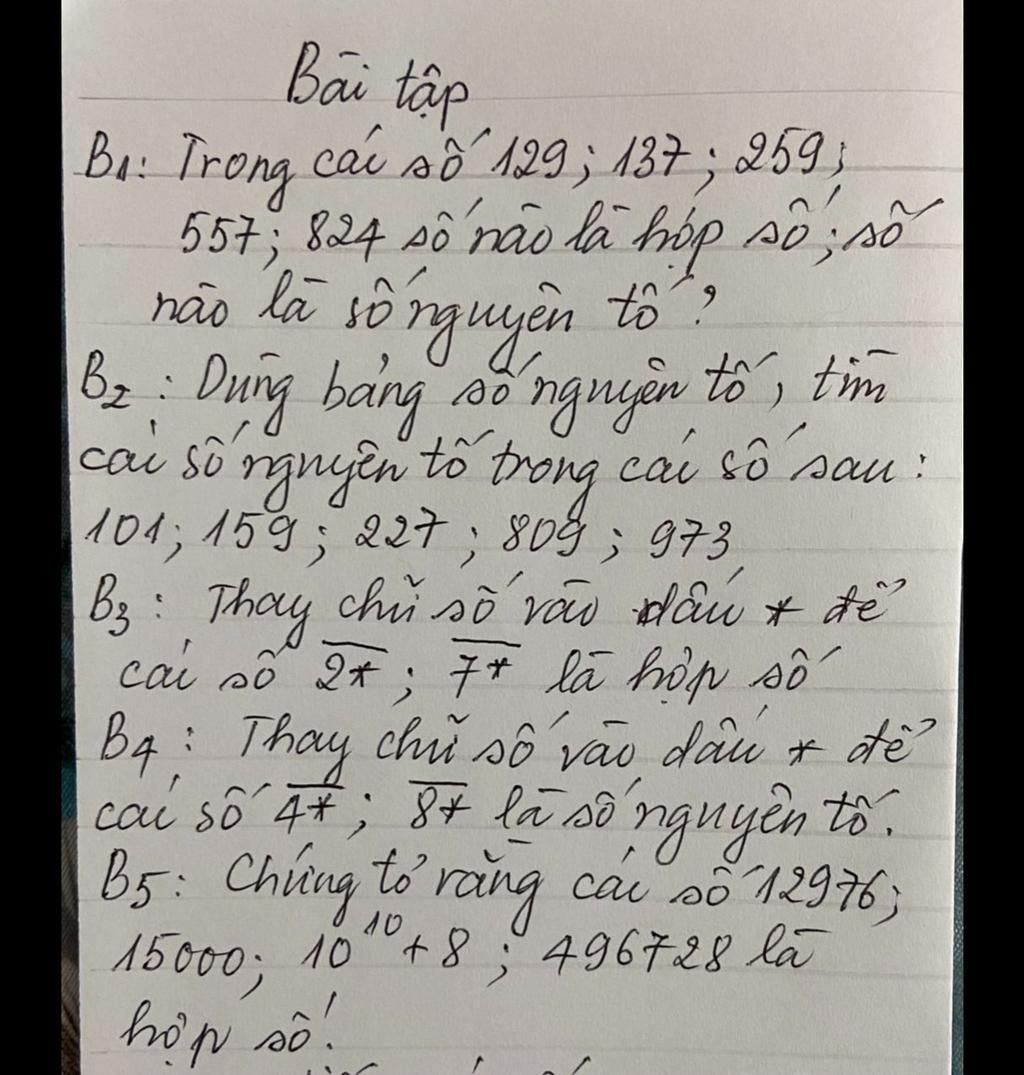 Bài tập
B1: Trong các số 129; 137; 259;
557; 824 số nào là hợp số; số
nào là số nguyên tố?
B2: Dùng bảng số nguyên tố, tìm
các số nguyên tố trong các số sau:
101; 159; 227; 809; 973
B3: Thay chữ số vào dấu * để
các số \overline{2*}; \overline{7*} là hợp số
B4: Thay chữ số vào dấu * để
các số \overline{4*}; \overline{8*} là số nguyên tố.
B5: Chứng tỏ rằng các số 12976;
15000; 10^{10} + 8; 496728 là
hợp số.